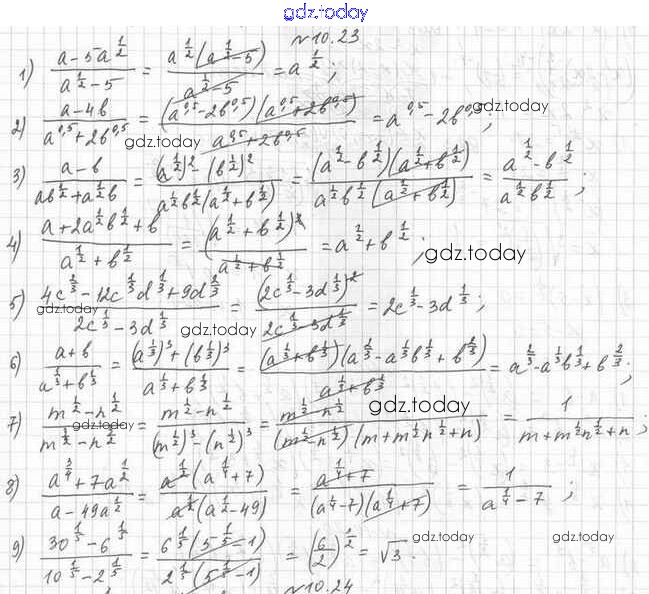 gdz.today
№10.23
1) (a-5a^{1/2})/(a^{1/2}-5) = (a^{1/2}(a^{1/2}-5))/(a^{1/2}-5) = a^{1/2};
2) (a-4b)/(a^{0,5}+2b^{0,5}) = ((a^{0,5}-2b^{0,5})(a^{0,5}+2b^{0,5}))/(a^{0,5}+2b^{0,5}) = a^{0,5}-2b^{0,5}; gdz.today
gdz.today
3) (a-b)/(ab^{1/2}+a^{1/2}b) = ((a^{1/2})^2-(b^{1/2})^2)/(a^{1/2}b^{1/2}(a^{1/2}+b^{1/2})) = ((a^{1/2}-b^{1/2})(a^{1/2}+b^{1/2}))/(a^{1/2}b^{1/2}(a^{1/2}+b^{1/2})) = (a^{1/2}-b^{1/2})/(a^{1/2}b^{1/2});
4) (a+2a^{1/2}b^{1/2}+b)/(a^{1/2}+b^{1/2}) = ((a^{1/2}+b^{1/2})^2)/(a^{1/2}+b^{1/2}) = a^{1/2}+b^{1/2}; gdz.today
5) (4c^{2/3}-12c^{1/3}d^{1/3}+9d^{2/3})/(2c^{1/3}-3d^{1/3}) = ((2c^{1/3}-3d^{1/3})^2)/(2c^{1/3}-3d^{1/3}) = 2c^{1/3}-3d^{1/3};
gdz.today gdz.today
6) (a+b)/(a^{1/3}+b^{1/3}) = ((a^{1/3})^3+(b^{1/3})^3)/(a^{1/3}+b^{1/3}) = ((a^{1/3}+b^{1/3})(a^{2/3}-a^{1/3}b^{1/3}+b^{2/3}))/(a^{1/3}+b^{1/3}) = a^{2/3}-a^{1/3}b^{1/3}+b^{2/3};
gdz.today
7) (m^{1/2}-n^{1/2})/(m^{3/2}-n^{3/2}) = (m^{1/2}-n^{1/2})/((m^{1/2})^3-(n^{1/2})^3) = (m^{1/2}-n^{1/2})/((m^{1/2}-n^{1/2})(m+m^{1/2}n^{1/2}+n)) = 1/(m+m^{1/2}n^{1/2}+n);
gdz.today
8) (a^{3/4}+7a^{1/2})/(a-49a^{1/2}) = (a^{1/2}(a^{1/4}+7))/(a^{1/2}(a^{1/2}-49)) = (a^{1/4}+7)/((a^{1/4}-7)(a^{1/4}+7)) = 1/(a^{1/4}-7);
9) (30^{1/5}-6^{1/5})/(10^{1/5}-2^{1/5}) = (6^{1/5}(5^{1/5}-1))/(2^{1/5}(5^{1/5}-1)) = (6/2)^{1/2} = √3.
gdz.today gdz.today gdz.today
№10.24